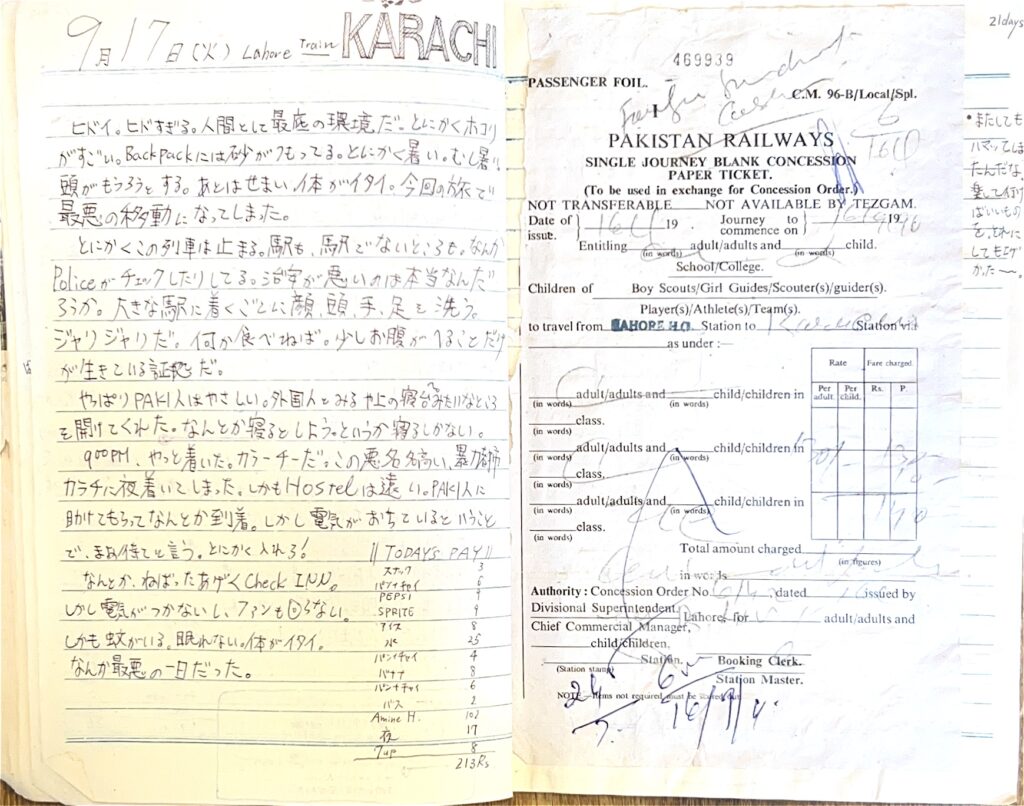 9月17日(火) Lahore Train KARACHI
ヒドイ。ヒドすぎる。人間として最底の環境だ。とにかくホコリ
がすごい。Backpackには砂がつもってる。とにかく暑い。むし暑い
頭がもうろうとする。あとはせまい。体がイタイ。今回の旅で
最悪の移動になってしまった。
とにかくこの列車は止まる。駅も、駅でないところも。なんか
Policeがチェックしたりしてる。治安が悪いのは本当なんだ
ろうか。大きな駅に着くごとに顔、頭、手、足を洗う。
ジャリジャリだ。何か食べねば。少しお腹がへることだけ
が生きている証拠だ。
やっぱりPAKI人はやさしい。外国人とみるや上の寝台みたいなところ
を開けてくれた。なんとか寝るとしよう。というか寝るしかない。
900PM、やっと着いた。カラーチーだ。この悪名名高い、暴力都市
カラチに夜着いてしまった。しかもHostelは遠い。PAKI人に
助けてもらってなんとか到着。しかし電気がおちているということ
で、まあ待てと言う。とにかく入れろ!
なんとか、ねばったあげくCheck INN。
しかし電気がつかないし、ファンも回らない。
しかも蚊がいる。眠れない。体がイタイ。
なんか最悪の一日だった。
TODAY'S PAY
スナック 3
パンナチャイ 6
PEPSI 9
SPRITE 9
アイス 8
水 25
パンナチャイ 4
バナナ 8
パンナチャイ 6
バス 2
Amine H. 102
夜 17
7up 8
213Rs
469939
PASSENGER FOIL.
C.M. 96-B/Local/Spl.
PAKISTAN RAILWAYS
SINGLE JOURNEY BLANK CONCESSION
PAPER TICKET.
(To be used in exchange for Concession Order.)
NOT TRANSFERABLE NOT AVAILABLE BY TEZGAM.
Date of issue. 19 . Journey to commence on 19
Entitling adult/adults and child.
(in words) (in words)
School/College.
Children of Boy Scouts/Girl Guides/Scouter(s)/guider(s).
Player(s)/Athlete(s)/Team(s).
to travel from LAHORE H.O. Station to Station via
as under :—
Rate Fare charged
Per adult. Per child. Rs. P.
adult/adults and child/children in
(in words) (in words)
class.
(in words)
adult/adults and child/children in
(in words) (in words)
class.
(in words)
adult/adults and child/children in
(in words) (in words)
class.
(in words)
Total amount charged
(in figures)
in words
Authority : Concession Order No. dated issued by
Divisional Superintendent,
Lahore, for adult/adults and
Chief Commercial Manager,
child/children.
Station. Booking Clerk.
(Station stamp) Station Master.
NOTE—Items not required must be
21days
・またしても
ハマッてしま
たんだな。